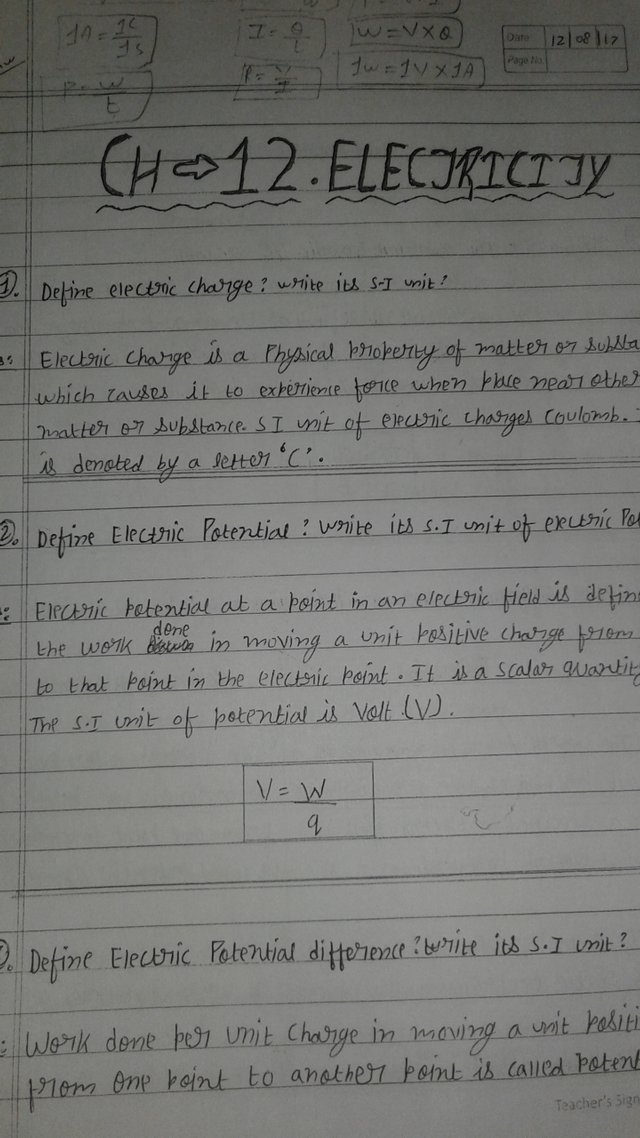 1A = 1C/1s
I = Q/t
W = V×Q
Date 12/08/17
Page No.
P = W/t
1W = 1V × 1A
CH ⇒ 12. ELECTRICITY
1. Define electric charge? Write its S.I unit?
Electric charge is a Physical property of matter or
which causes it to experience force when place near other
matter or substance. S I unit of electric charges Coulomb.
is denoted by a letter 'C'.
2. Define Electric Potential? Write its S.I unit of electric
Electric potential at a point in an electric field is
the work done in moving a unit positive charge from
to that point in the electric point. It is a scalar
The S.I unit of potential is Volt (V).
V = W/q
Define Electric Potential difference? Write its S.I unit?
Work done per unit charge in moving a unit
from one point to another point is called
Teacher's